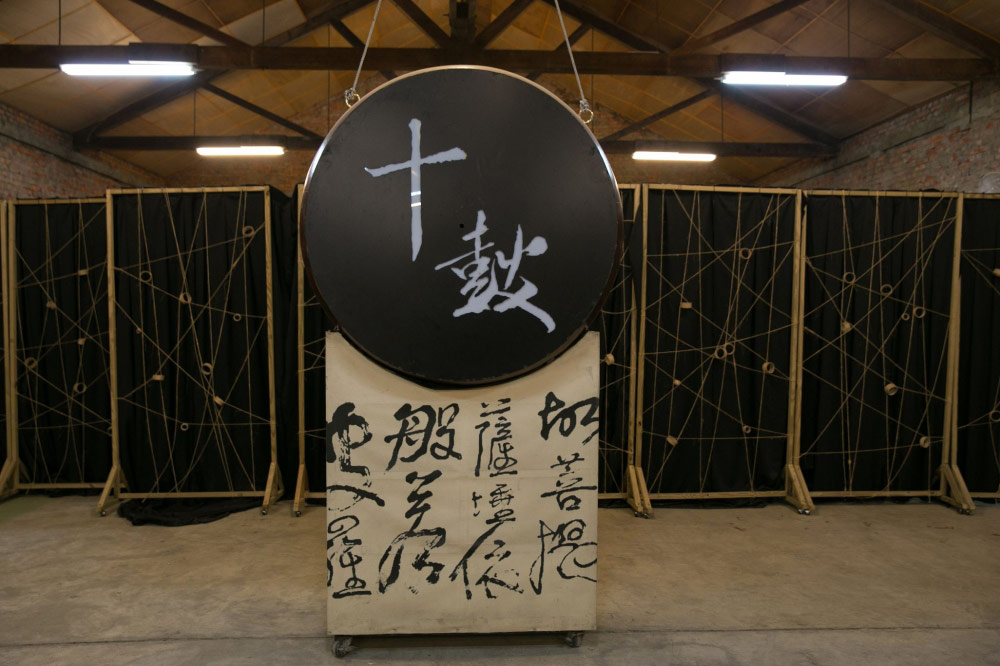 十鼓
故菩提
薩埵依
般若
波羅